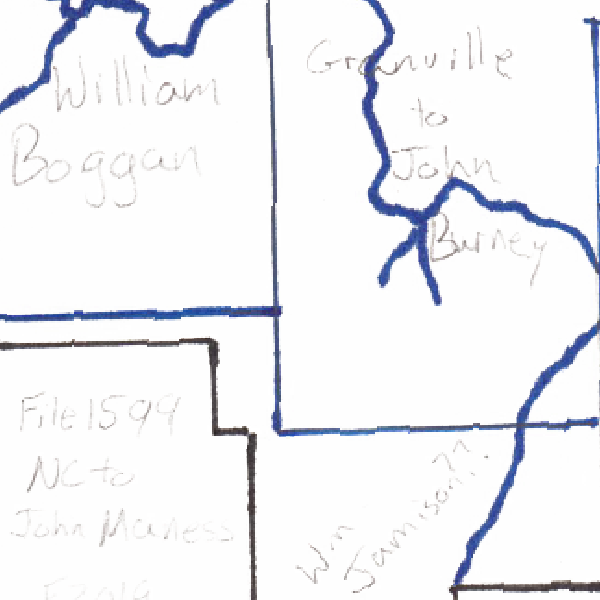 William
Boggan
Granville
to
John
Burney
File 1599
NC to
John Maness
Wm
Jamison??